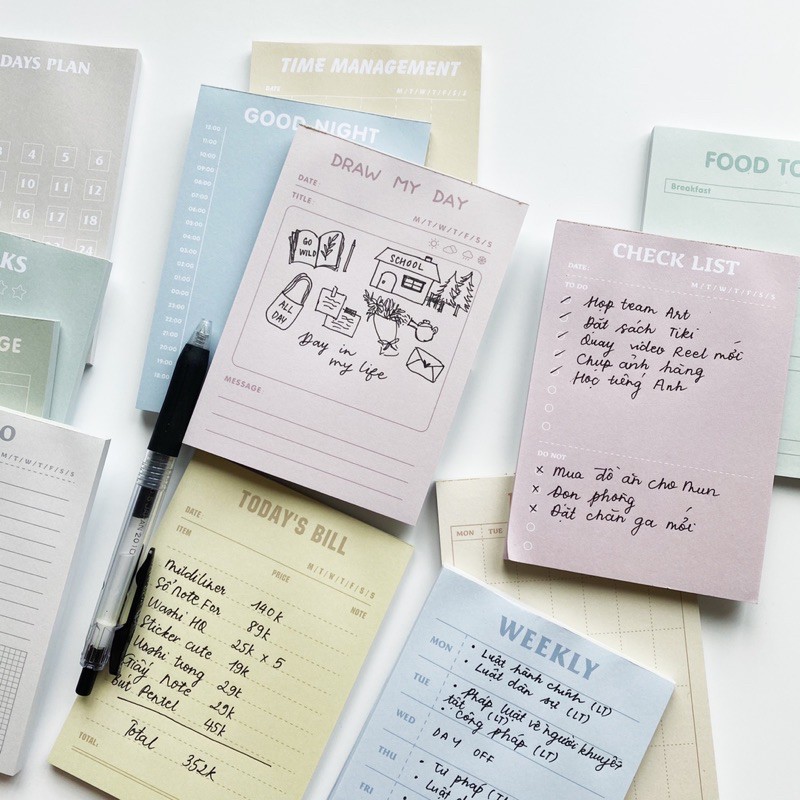 DAYS PLAN
4 5 6
10 11 12
16 17 18
24
KS
GE
O
M/T/W/T/F/S/S
TIME MANAGEMENT
DATE
M/T/W/T/F/S/S
GOOD NIGHT
12:00
11:00
10:00
09:00
08:00
DRAW MY DAY
DATE
M/T/W/T/F/S/S
TITLE
GO WILD
SCHOOL
ALL DAY
Day in
my life
MESSAGE
FOOD TO
Breakfast
CHECK LIST
DATE.
M/T/W/T/F/S/S
TO DO
Họp team Art
Đặt sách Tiki
Quay video Reel mới
Chụp ảnh hàng
Học tiếng Anh
DO NOT
x Mua đồ ăn cho Mun
x Dọn phòng
x Đặt chăn ga mới
TODAY'S BILL
DATE.
M/T/W/T/F/S/S
ITEM PRICE NOTE
Mildliner 140k
Sổ Note For 89k
Washi HQ 25k x 5
Sticker cute 19k
Washi trong 29k
Giấy Note 29k
Bút Pentel 45k
Total 352k
TOTAL.
MON TUE
WEEKLY
MON
• Luật hành chính (LT)
• Luật dân sự (LT)
TUE
• Pháp luật về người khuyết
tật (LT)
• Công pháp (LT)
WED
DAY OFF
THU
• Tư pháp
• Luật
FRI